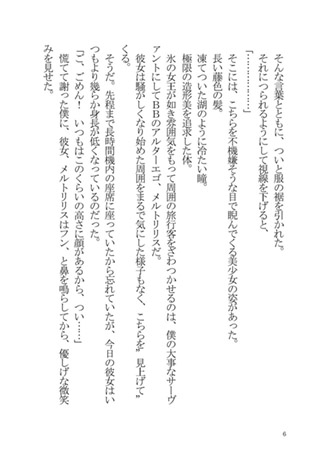 そんな言葉とともに、ついと服の裾を引かれた。
それにつられるようにして視線を下げると、
「………………」
そこには、こちらを不機嫌そうな目で睨んでくる美少女の姿があった。
長い藤色の髪。
凍てついた湖のように冷たい瞳。
極限の造形美を追求した体。
氷の女王が如き雰囲気をもって周囲の旅行客をざわつかせるのは、僕の大事なサーヴ
ァントにしてＢＢのアルターエゴ、メルトリリスだ。
彼女は騒がしくなり始めた周囲をまるで気にした様子もなく、こちらを〝見上げて〟
くる。
そうだ。先程まで長時間機内の座席に座っていたから忘れていたが、今日の彼女はい
つもより幾らか身長が低くなっているのだった。
「ご、ごめん！　いつもはこのくらいの高さに顔があるから、つい……」
慌てて謝った僕に、彼女、メルトリリスはフン、と鼻を鳴らしてから、優しげな微笑
みを見せた。
6